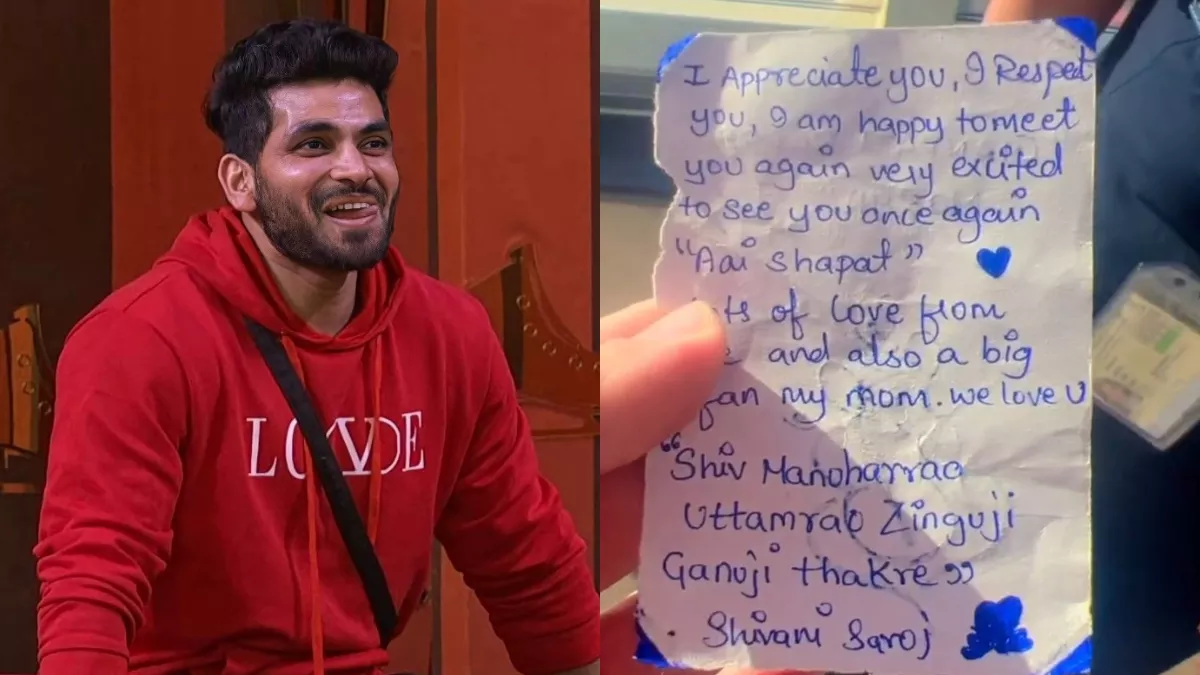 LOVDE
I Appreciate you, I Respect
you, I am happy to meet
you again very excited
to see you once again
"Aai Shapat"
of love from
and also a big
fan my mom. we love U
"Shiv Manoharrao
Uttamrao Zinguji
Ganuji thakre"
Shivani Saroj